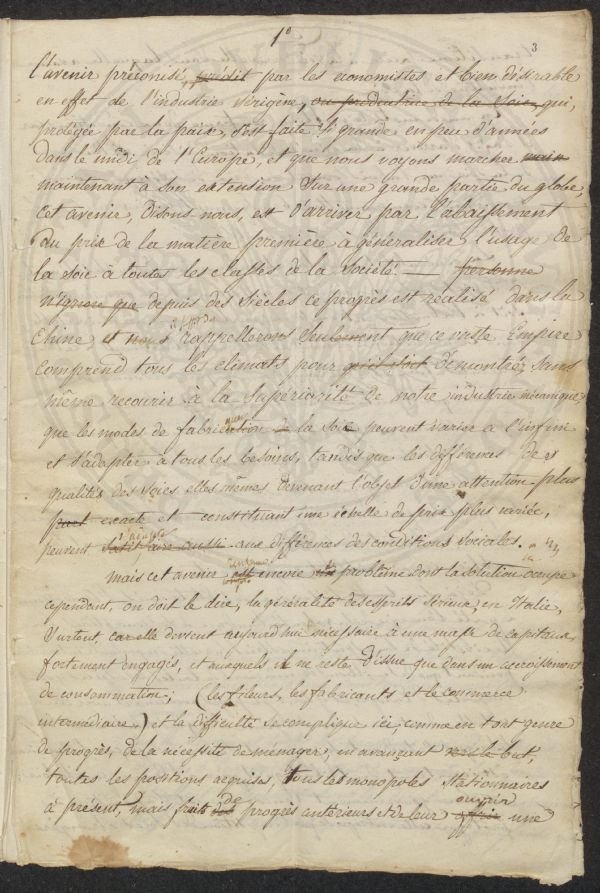 1°
3
L'avenir préconisé prédit par les économistes et bien désirable
en effet de l'industrie sérigène, ou productrice de la Soie, qui,
protégée par la paix, s'est faite si grande en peu d'années
dans le midi de l'Europe, et que nous voyons marcher main
maintenant à son extension sur une grande partie du globe,
cet avenir, disons nous, est d'arriver par l'abaissement
du prix de la matière première à généraliser l'usage de
la soie à toutes les classes de la Société — Personne
n'ignore que depuis des siècles ce progrès est réalisé dans la
Chine et nous rappellerons seulement que ce vaste Empire
comprend tous les climats pour qu'il soit démontré, sans
même recourir à la supériorité de notre industrie mécanique,
que les modes de fabrication à la soie peuvent varier à l'infini
et s'adapter à tous les besoins, tandis que les différences des
qualités des soies elles mêmes devenant l'objet d'une attention plus
part exacte et constituant une échelle de prix plus variée,
peuvent satisfaire aussi aux différences des conditions sociales.
Mais cet avenir est encore un problème dont la solution occupe
cependant, on doit le dire, la généralité des esprits sérieux, en Italie,
surtout, car elle devient aujourd'hui nécessaire à une masse de capitaux
fortement engagés, et auxquels il ne reste d'issue que dans un accroissement
de consommation; (les fileurs, les fabricants et le commerce
intermédiaire) et la difficulté se complique ici, comme en tout genre
de progrès, de la nécessité de ménager, en avançant vers le but,
toutes les positions acquises, tous les monopoles stationnaires
ouvrir
à présent, mais fruits des de progrès antérieurs et de leur offrir une